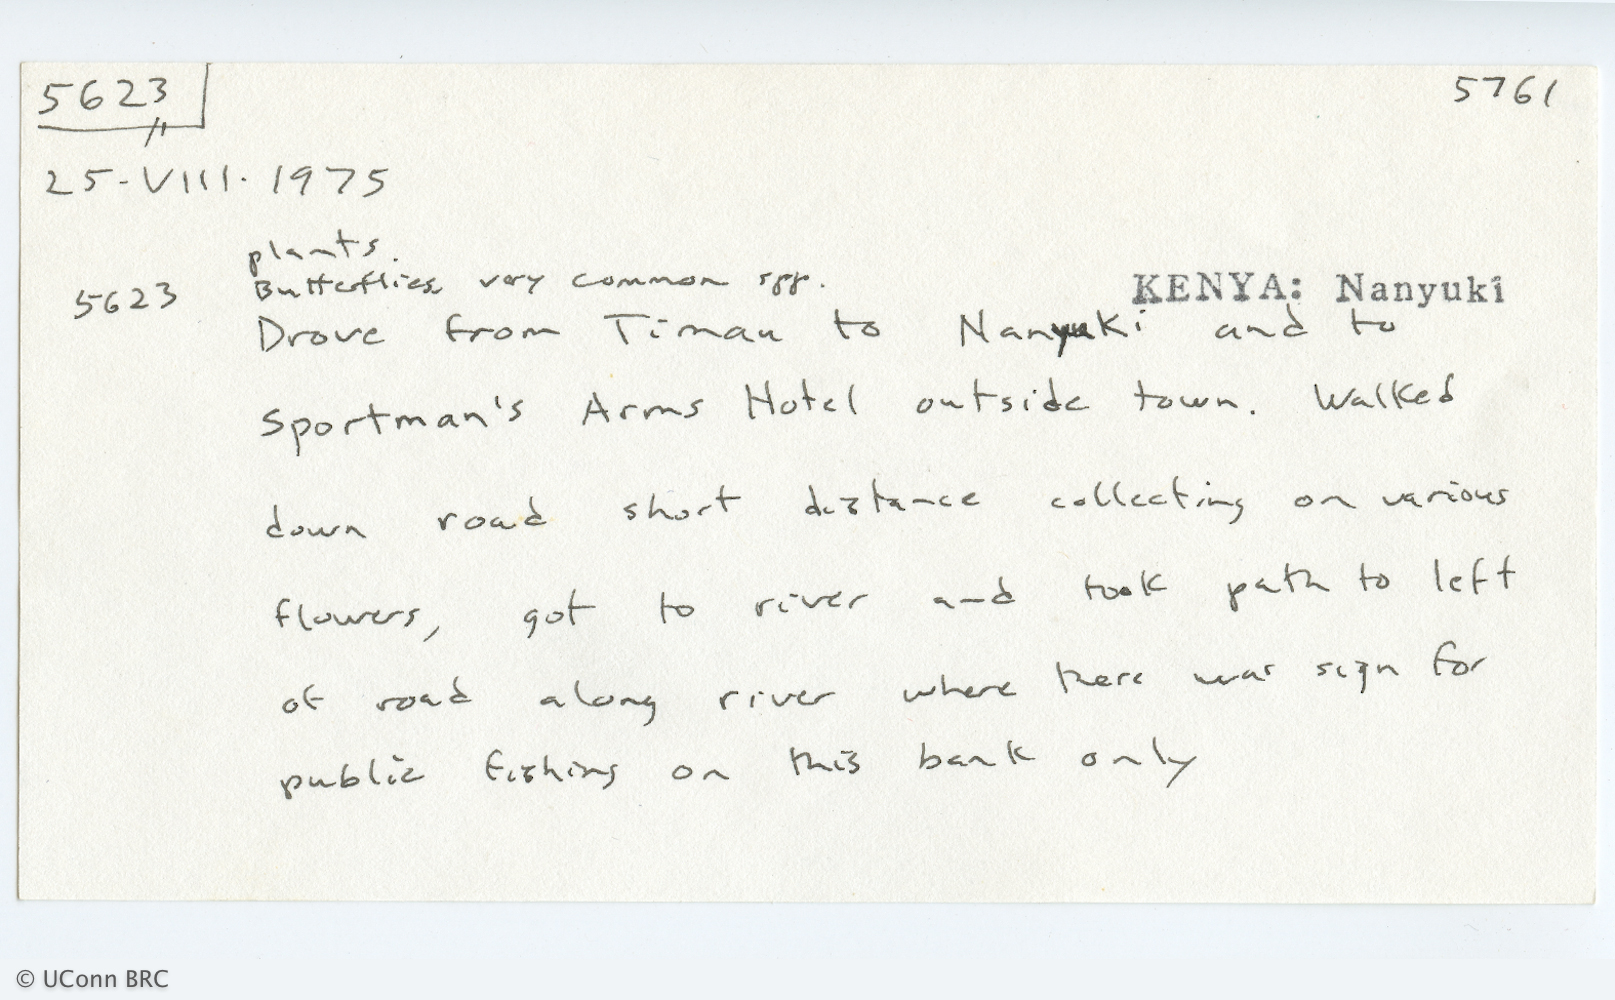 5623
5761
25-VIII-1975
plants.
5623 Butterflies very common spp.
KENYA: Nanyuki
Drove from Timau to Nanyuki and to
Sportman's Arms Hotel outside town. Walked
down road short distance collecting on various
flowers, got to river and took path to left
of road along river where there was sign for
public fishing on this bank only
© UConn BRC